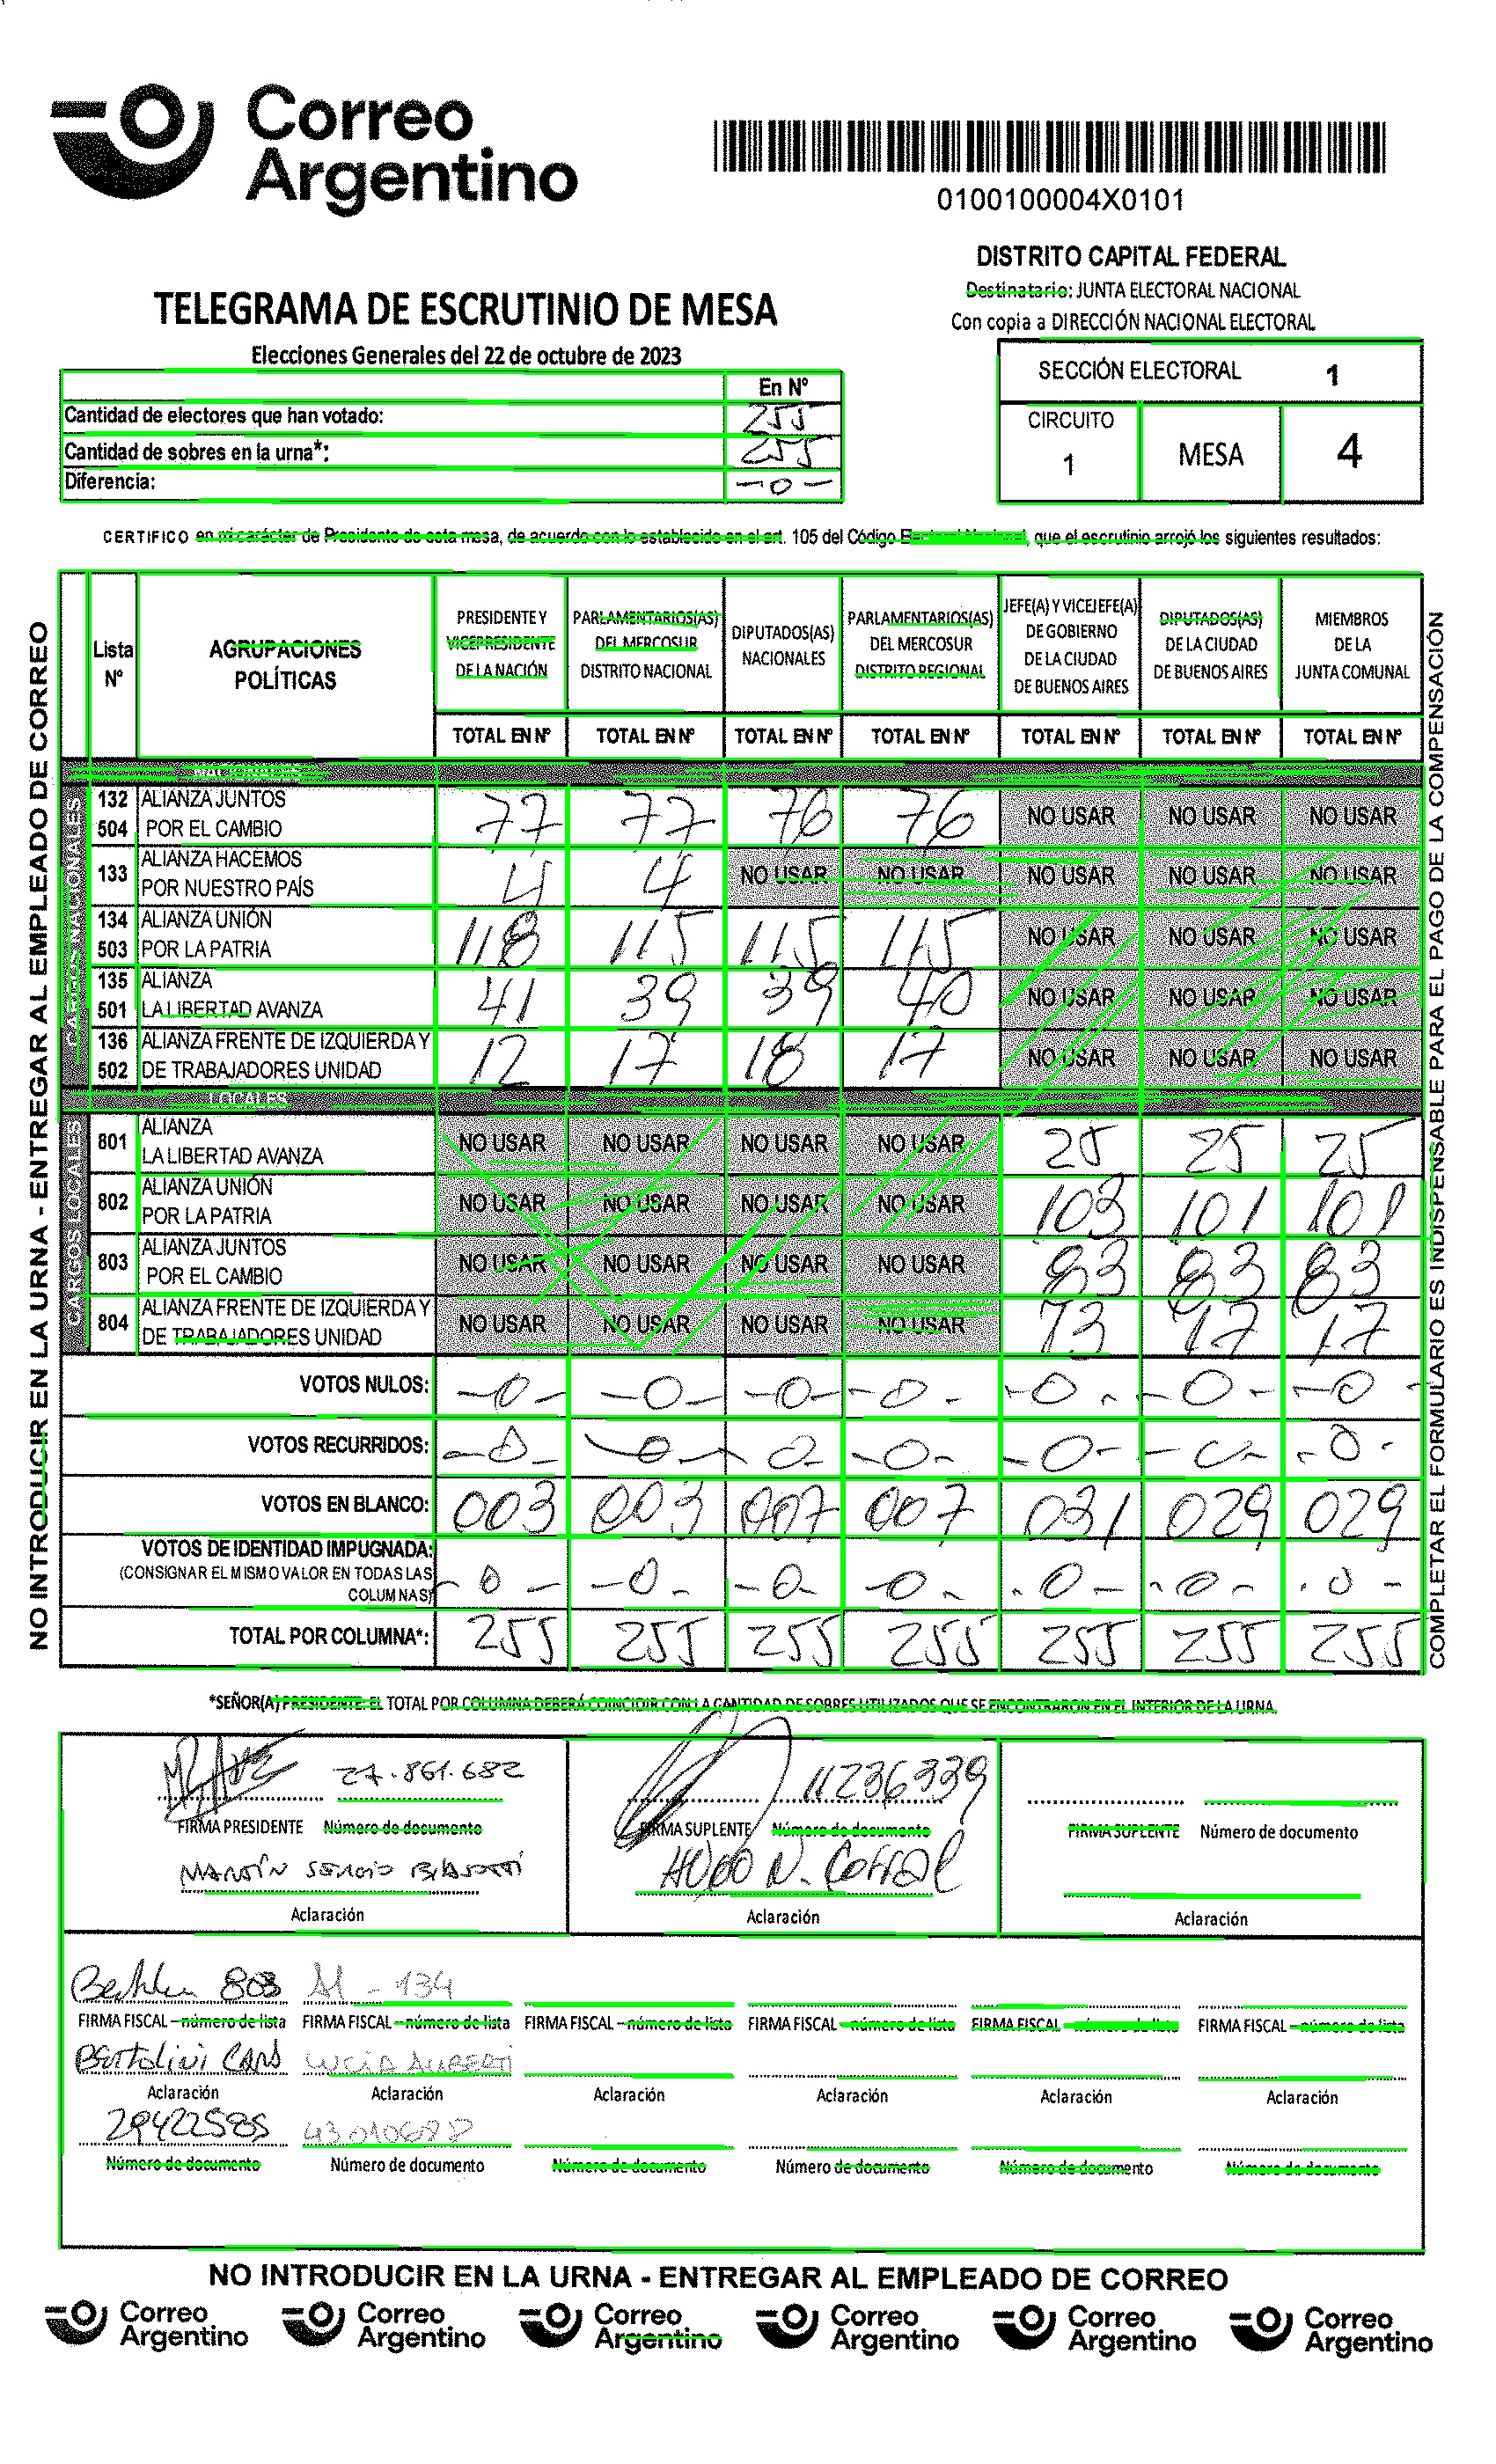 Correo
Argentino
0100100004X0101
DISTRITO CAPITAL FEDERAL
Destinatario: JUNTA ELECTORAL NACIONAL
Con copia a DIRECCIÓN NACIONAL ELECTORAL
TELEGRAMA DE ESCRUTINIO DE MESA
Elecciones Generales del 22 de octubre de 2023
SECCIÓN ELECTORAL 1
CIRCUITO
1
MESA 4
En N°
Cantidad de electores que han votado: 255
Cantidad de sobres en la urna*: 255
Diferencia: -0-
CERTIFICO en mi carácter de Presidente de esta mesa, de acuerdo con lo establecido en el art. 105 del Código Electoral Nacional, que el escrutinio arrojó los siguientes resultados:
NO INTRODUCIR EN LA URNA - ENTREGAR AL EMPLEADO DE CORREO
Lista N°
AGRUPACIONES POLÍTICAS
PRESIDENTE Y VICEPRESIDENTE DE LA NACIÓN
PARLAMENTARIOS(AS) DEL MERCOSUR DISTRITO NACIONAL
DIPUTADOS(AS) NACIONALES
PARLAMENTARIOS(AS) DEL MERCOSUR DISTRITO REGIONAL
JEFE(A) Y VICEJEFE(A) DE GOBIERNO DE LA CIUDAD DE BUENOS AIRES
DIPUTADOS(AS) DE LA CIUDAD DE BUENOS AIRES
MIEMBROS DE LA JUNTA COMUNAL
TOTAL EN N° TOTAL EN N° TOTAL EN N° TOTAL EN N° TOTAL EN N° TOTAL EN N° TOTAL EN N°
132 504 ALIANZA JUNTOS POR EL CAMBIO 77 77 76 76 NO USAR NO USAR NO USAR
133 ALIANZA HACEMOS POR NUESTRO PAÍS 4 4 NO USAR NO USAR NO USAR NO USAR NO USAR
134 503 ALIANZA UNIÓN POR LA PATRIA 118 115 115 115 NO USAR NO USAR NO USAR
135 501 ALIANZA LA LIBERTAD AVANZA 41 39 39 40 NO USAR NO USAR NO USAR
136 502 ALIANZA FRENTE DE IZQUIERDA Y DE TRABAJADORES UNIDAD 12 17 18 17 NO USAR NO USAR NO USAR
LOCALES
CARGOS LOCALES
801 ALIANZA LA LIBERTAD AVANZA NO USAR NO USAR NO USAR NO USAR 25 25 25
802 ALIANZA UNIÓN POR LA PATRIA NO USAR NO USAR NO USAR NO USAR 103 101 101
803 ALIANZA JUNTOS POR EL CAMBIO NO USAR NO USAR NO USAR NO USAR 83 83 83
804 ALIANZA FRENTE DE IZQUIERDA Y DE TRABAJADORES UNIDAD NO USAR NO USAR NO USAR NO USAR 13 17 17
VOTOS NULOS: -0- -0- -0- -0- -0- -0- -0-
VOTOS RECURRIDOS: -0- -0- -0- -0- -0- -0- -0-
VOTOS EN BLANCO: 003 003 007 007 031 029 029
VOTOS DE IDENTIDAD IMPUGNADA: (CONSIGNAR EL MISMO VALOR EN TODAS LAS COLUMNAS) -0- -0- -0- -0- -0- -0- -0-
TOTAL POR COLUMNA*: 255 255 255 255 255 255 255
COMPLETAR EL FORMULARIO ES INDISPENSABLE PARA EL PAGO DE LA COMPENSACIÓN
*SEÑOR(A) PRESIDENTE: EL TOTAL POR COLUMNA DEBERÁ COINCIDIR CON LA CANTIDAD DE SOBRES UTILIZADOS QUE SE ENCONTRARON EN EL INTERIOR DE LA URNA.
27.861.682 11236339
FIRMA PRESIDENTE Número de documento FIRMA SUPLENTE Número de documento FIRMA SUPLENTE Número de documento
MARTÍN SERGIO HUGO N. CORRAL
Aclaración Aclaración Aclaración
803 134
FIRMA FISCAL – número de lista FIRMA FISCAL – número de lista FIRMA FISCAL – número de lista FIRMA FISCAL – número de lista FIRMA FISCAL – número de lista FIRMA FISCAL – número de lista
Bertolini LUCÍA ALIBERTI
Aclaración Aclaración Aclaración Aclaración Aclaración Aclaración
29422585
Número de documento Número de documento Número de documento Número de documento Número de documento Número de documento
NO INTRODUCIR EN LA URNA - ENTREGAR AL EMPLEADO DE CORREO
Correo Argentino Correo Argentino Correo Argentino Correo Argentino Correo Argentino Correo Argentino